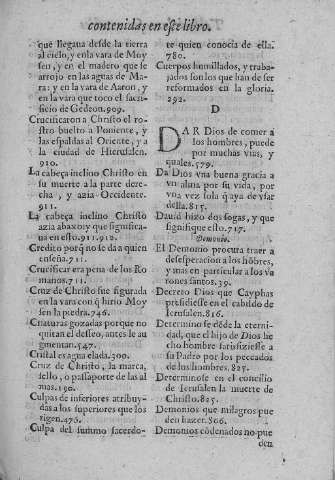 contenidas en este libro.
que llegaua desde la tierra
al cielo, y enla vara de Moy
sen, y en el madero que se
arrojo en las aguas de Ma-
ra: y en la vara de Aaron, y
en la vara que toco el sacri-
ficio de Gedeon. 909.
Crucificaron a Christo el ro-
stro buelto a Poniente, y
las espaldas al Oriente, y a
la ciudad de Hierusalen.
910.
La cabeça inclino Christo en
su muerte a la parte dere-
cha, y azia Occidente.
911.
La cabeça inclino Christo
azia abaxo: y que significa-
na en esto. 911. 912.
Credito porq̃ no se da a quien
enseña. 711.
Crucificar era pena de los Ro
manos. 711.
Cruz de Christo fue figurada
en la vara con q̃ hirio Moy
sen la piedra. 746.
Criaturas gozadas porque no
quitan el desseo, antes le au
gmentan. 547.
Cristal es agua elada. 300.
Cruz de Christo, la marca,
sello, o passaporte de las al
mas. 190.
Culpas de inferiores atribuy-
das a los superiores que los
rigen. 476.
Culpa del summo sacerdo-
te quien conocia de ella.
780.
Cuerpos humillados, y traba-
jados son los que han de ser
reformados en la gloria.
292.
D
DAR Dios de comer a
los hombres, puede
por muchas vias, y
quales. 579.
Da Dios vna buena gracia a
vn alma por su vida, por
vna vez sola q̃ aya de vsar
della. 815.
Dauid hizo dos sogas, y que
signifique esto. 717.
Demonio.
El Demonio procura traer a
desesperacion a los hõbres,
y mas en particular a los va
rones santos. 39.
Decreto Dios que Cayphas
presidiesse en el cabildo de
Ierusalen. 816.
Determino se dẽde la eterni-
dad, que el hijo de Dios he
cho hombre satisfiziesse a
su Padre por los peccados
de los hombres. 825.
Determinose en el concilio
de Ierusalen la muerte de
Christo. 825.
Demonios que milagros pue
den hazer. 806.
Demonios cõdenados no pue
den